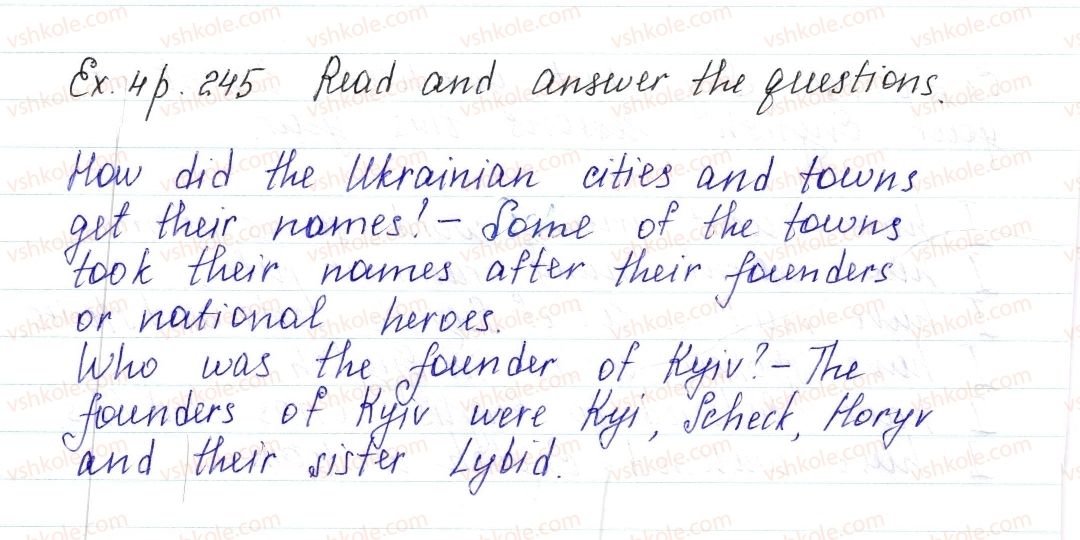 Ex. 4 p. 245 Read and answer the questions.
How did the Ukrainian cities and towns
get their names? - Some of the towns
took their names after their founders
or national heroes.
Who was the founder of Kyiv? - The
founders of Kyiv were Kyi, Scheck, Horyv
and their sister Lybid.